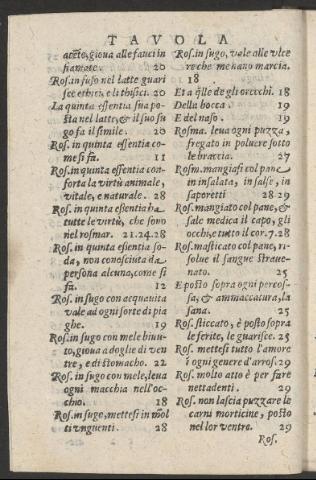 TAVOLA
aceto, gioua alle fauci in
fiamate. 20
Ros. in suso nel latte guari
sce ethici, e li thisici. 20
La quinta essentia sua po-
sta nel latte, & il suo su
go fa il simile. 20
Ros. in quinta essentia co-
me si fa. 11
Ros. in quinta essentia con-
forta la virtù animale,
vitale, e naturale. 28
Ros. in quinta essentia ha
tutte le virtù, che sono
nel rosmar. 21.24.28
Ros. in quinta essentia so-
da, non conosciuta da
persona alcuno, come si
fa. 12
Ros. in sugo con acquauita
vale ad ogni sorte di pia
ghe. 19
Ros. in sugo con mele binu-
to, gioua a doglie di ven
tre, e di stomaco. 22
Ros. in sugo con mele, leua
ogni macchia nell'oc-
chio. 18
Ros. in sugo, mettesi in mol
ti vnguenti. 28
Ros. in sugo, vale alle vlce
re che menano marcia.
18
Et a fistle de gli orecchi. 18
Della bocca. 19
E del naso. 19
Rosma. leua ogni puzza,
fregato in poluere sotto
le braccia. 27
Rosm. mangiasi col pane
in insalata, in salse, in
saporetti 28.29
Ros. mangiato col pane, &
sale medica il capo, gli
occhi, e tutto il cor. 7.28
Ros. masticato col pane, ri-
solue il sangue straue-
nato. 25
E posto sopra ogni percos-
sa, & ammaccatura, la
sana. 25
Ros. sticcato, è posto sopra
le ferite, le guarisce. 25
Ros. mettesi tutto l'amore
i ogni genere d'arros. 29
Ros. molto atto è per fare
nettadenti. 29
Ros. non lascia puzzare le
carni morticine, posto
nel lor ventre. 29
Ros.